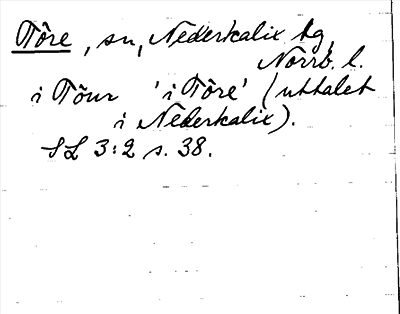 Töre, sn, Nederkalix tg,
Norrb. l.
i Töur 'i Töre' (uttalet
i Nederkalix).
SL 3:2 s. 38.